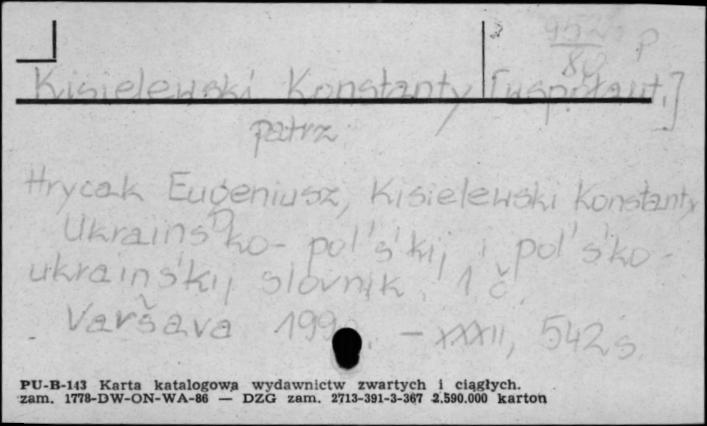 952 P
80
Kisielewski Konstanty [współaut.]
patrz
Hrycak Eugeniusz, Kisielewski Konstanty
Ukrains'ko-pol's'kij i pol's'ko-
ukrains'kij slovnik. 1 č.
Varšava 199 . - XXXII, 542 s.
PU-B-143 Karta katalogowa wydawnictw zwartych i ciągłych.
zam. 1778-DW-ON-WA-86 — DZG zam. 2713-391-3-367 2.590.000 karton